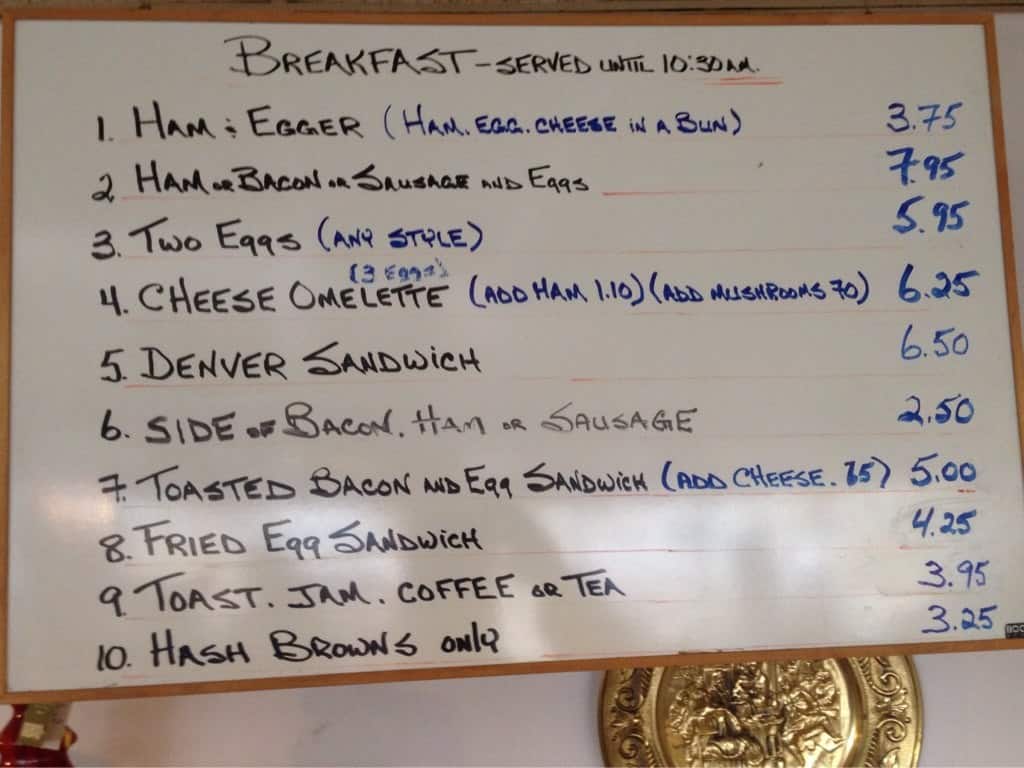 BREAKFAST - SERVED UNTIL 10:30 AM.
1. HAM & EGGER (HAM. EGG. CHEESE IN A BUN) 3.75
2 HAM OR BACON OR SAUSAGE AND EGGS 7.95
3. TWO EGGS (ANY STYLE) 5.95
(3 EGGS)
4. CHEESE OMELETTE (ADD HAM 1.10) (ADD MUSHROOMS 70) 6.25
5. DENVER SANDWICH 6.50
6. SIDE OF BACON. HAM OR SAUSAGE 2.50
7. TOASTED BACON AND EGG SANDWICH (ADD CHEESE . ) 5.00
8. FRIED EGG SANDWICH 4.25
9 TOAST. JAM. COFFEE OR TEA 3.95
10. HASH BROWNS ONLY 3.25